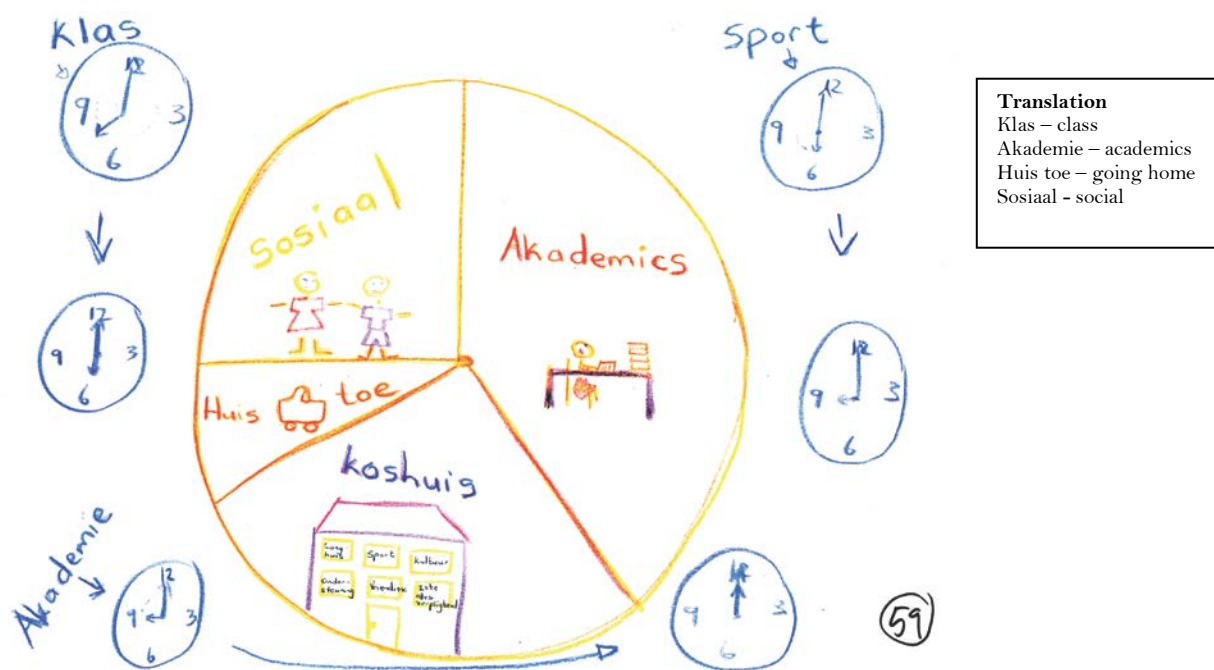 Klas
12
9 3
6
12
9 3
6
Akademie
12
9 3
6
Sosiaal
Akademics
Huis toe
koshuis
Sport
Kultuur
Onder-
steuning
Sport
12
9 3
6
12
9 3
6
12
9 3
6
59
Translation
Klas – class
Akademie – academics
Huis toe – going home
Sosiaal - social